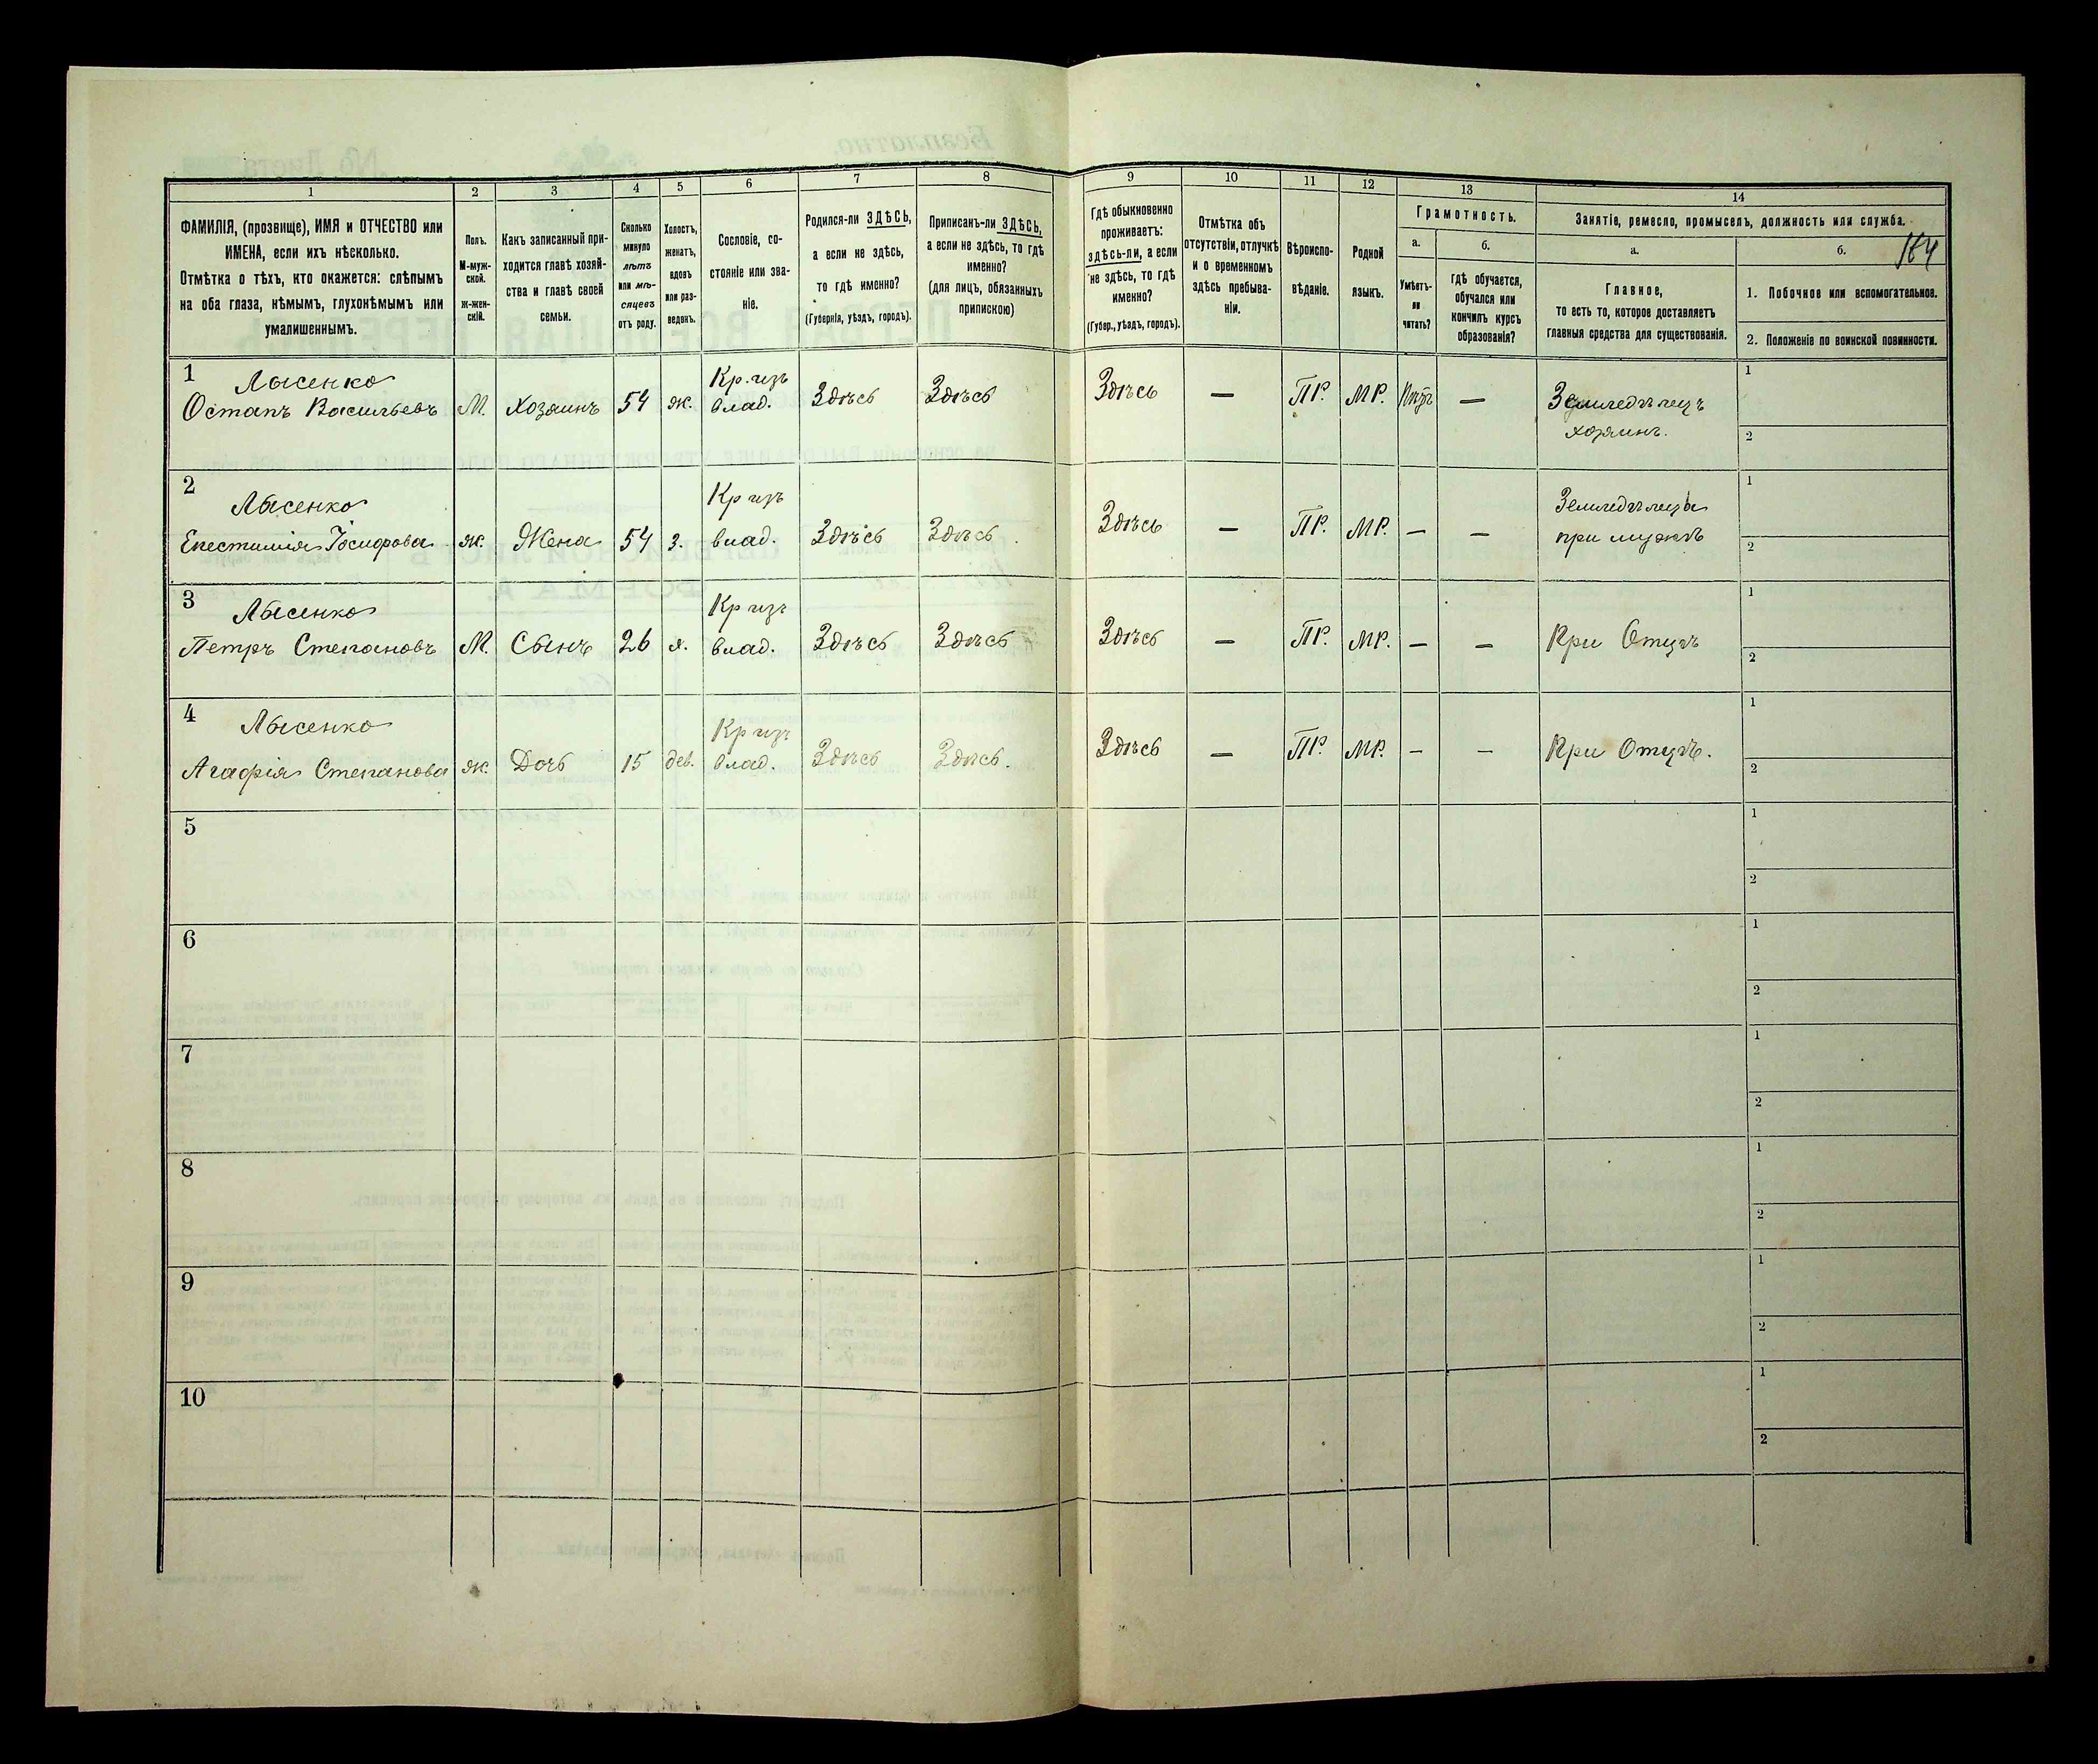 1 2 3 4 5 6 7 8 9 10 11 12 13 14
ФАМИЛІЯ, (прозвище), ИМЯ и ОТЧЕСТВО или
ИМЕНА, если ихъ нѣсколько.
Отмѣтка о тѣхъ, кто окажется: слѣпымъ
на оба глаза, нѣмымъ, глухонѣмымъ или
умалишеннымъ.
Полъ.
М-муж-
ской.
Ж-жен-
скій.
Какъ записанный при-
ходится главѣ хозяй-
ства и главѣ своей
семьи.
Сколько
минуло
лѣтъ
или мѣ-
сяцевъ
отъ роду.
Холостъ,
женатъ,
вдовъ
или раз-
веденъ.
Сословіе, со-
стояніе или зва-
ніе.
Родился-ли ЗДѢСЬ,
а если не здѣсь,
то гдѣ именно?
(Губернія, уѣздъ, городъ).
Приписанъ-ли ЗДѢСЬ,
а если не здѣсь, то гдѣ
именно?
(для лицъ, обязанныхъ
припискою)
Гдѣ обыкновенно
проживаетъ:
здѣсь-ли, а если
не здѣсь, то гдѣ
именно?
(Губер., уѣздъ, городъ).
Отмѣтка объ
отсутствіи, отлучкѣ
и о временномъ
здѣсь пребыва-
ніи.
Вѣроиспо-
вѣданіе.
Родной
языкъ.
Грамотность.
а.
Умѣетъ-
ли
читать?
б.
Гдѣ обучается,
обучался или
кончилъ курсъ
образованія?
Занятіе, ремесло, промыселъ, должность или служба.
а.
Главное,
то есть то, которое доставляетъ
главныя средства для существованія.
б.
1. Побочное или вспомогательное.
2. Положеніе по воинской повинности.
1 Лысенко Кр. изъ 1
Остапъ Васильевъ М. Хозяинъ 54 ж. влад. Здѣсь Здѣсь Здѣсь — ПР. МР. — Земледѣлецъ
хозяинъ. 2
2 Лысенко Кр изъ Земледѣлецъ 1
Іосифова ж. Жена 54 з. влад. Здѣсь Здѣсь Здѣсь — ПР. МР. — — при мужѣ 2
3 Лысенко Кр изъ 1
Петръ Степановъ М. Сынъ 26 х. влад. Здѣсь Здѣсь Здѣсь — ПР. МР. — — При Отцѣ 2
4 Лысенко Кр изъ 1
Агафія Степанова ж. Дочь 15 дев. влад. Здѣсь Здѣсь. Здѣсь — ПР. МР. — — При Отцѣ. 2
5 1
2
6 1
2
7 1
2
8 1
2
9 1
2
10 1
2